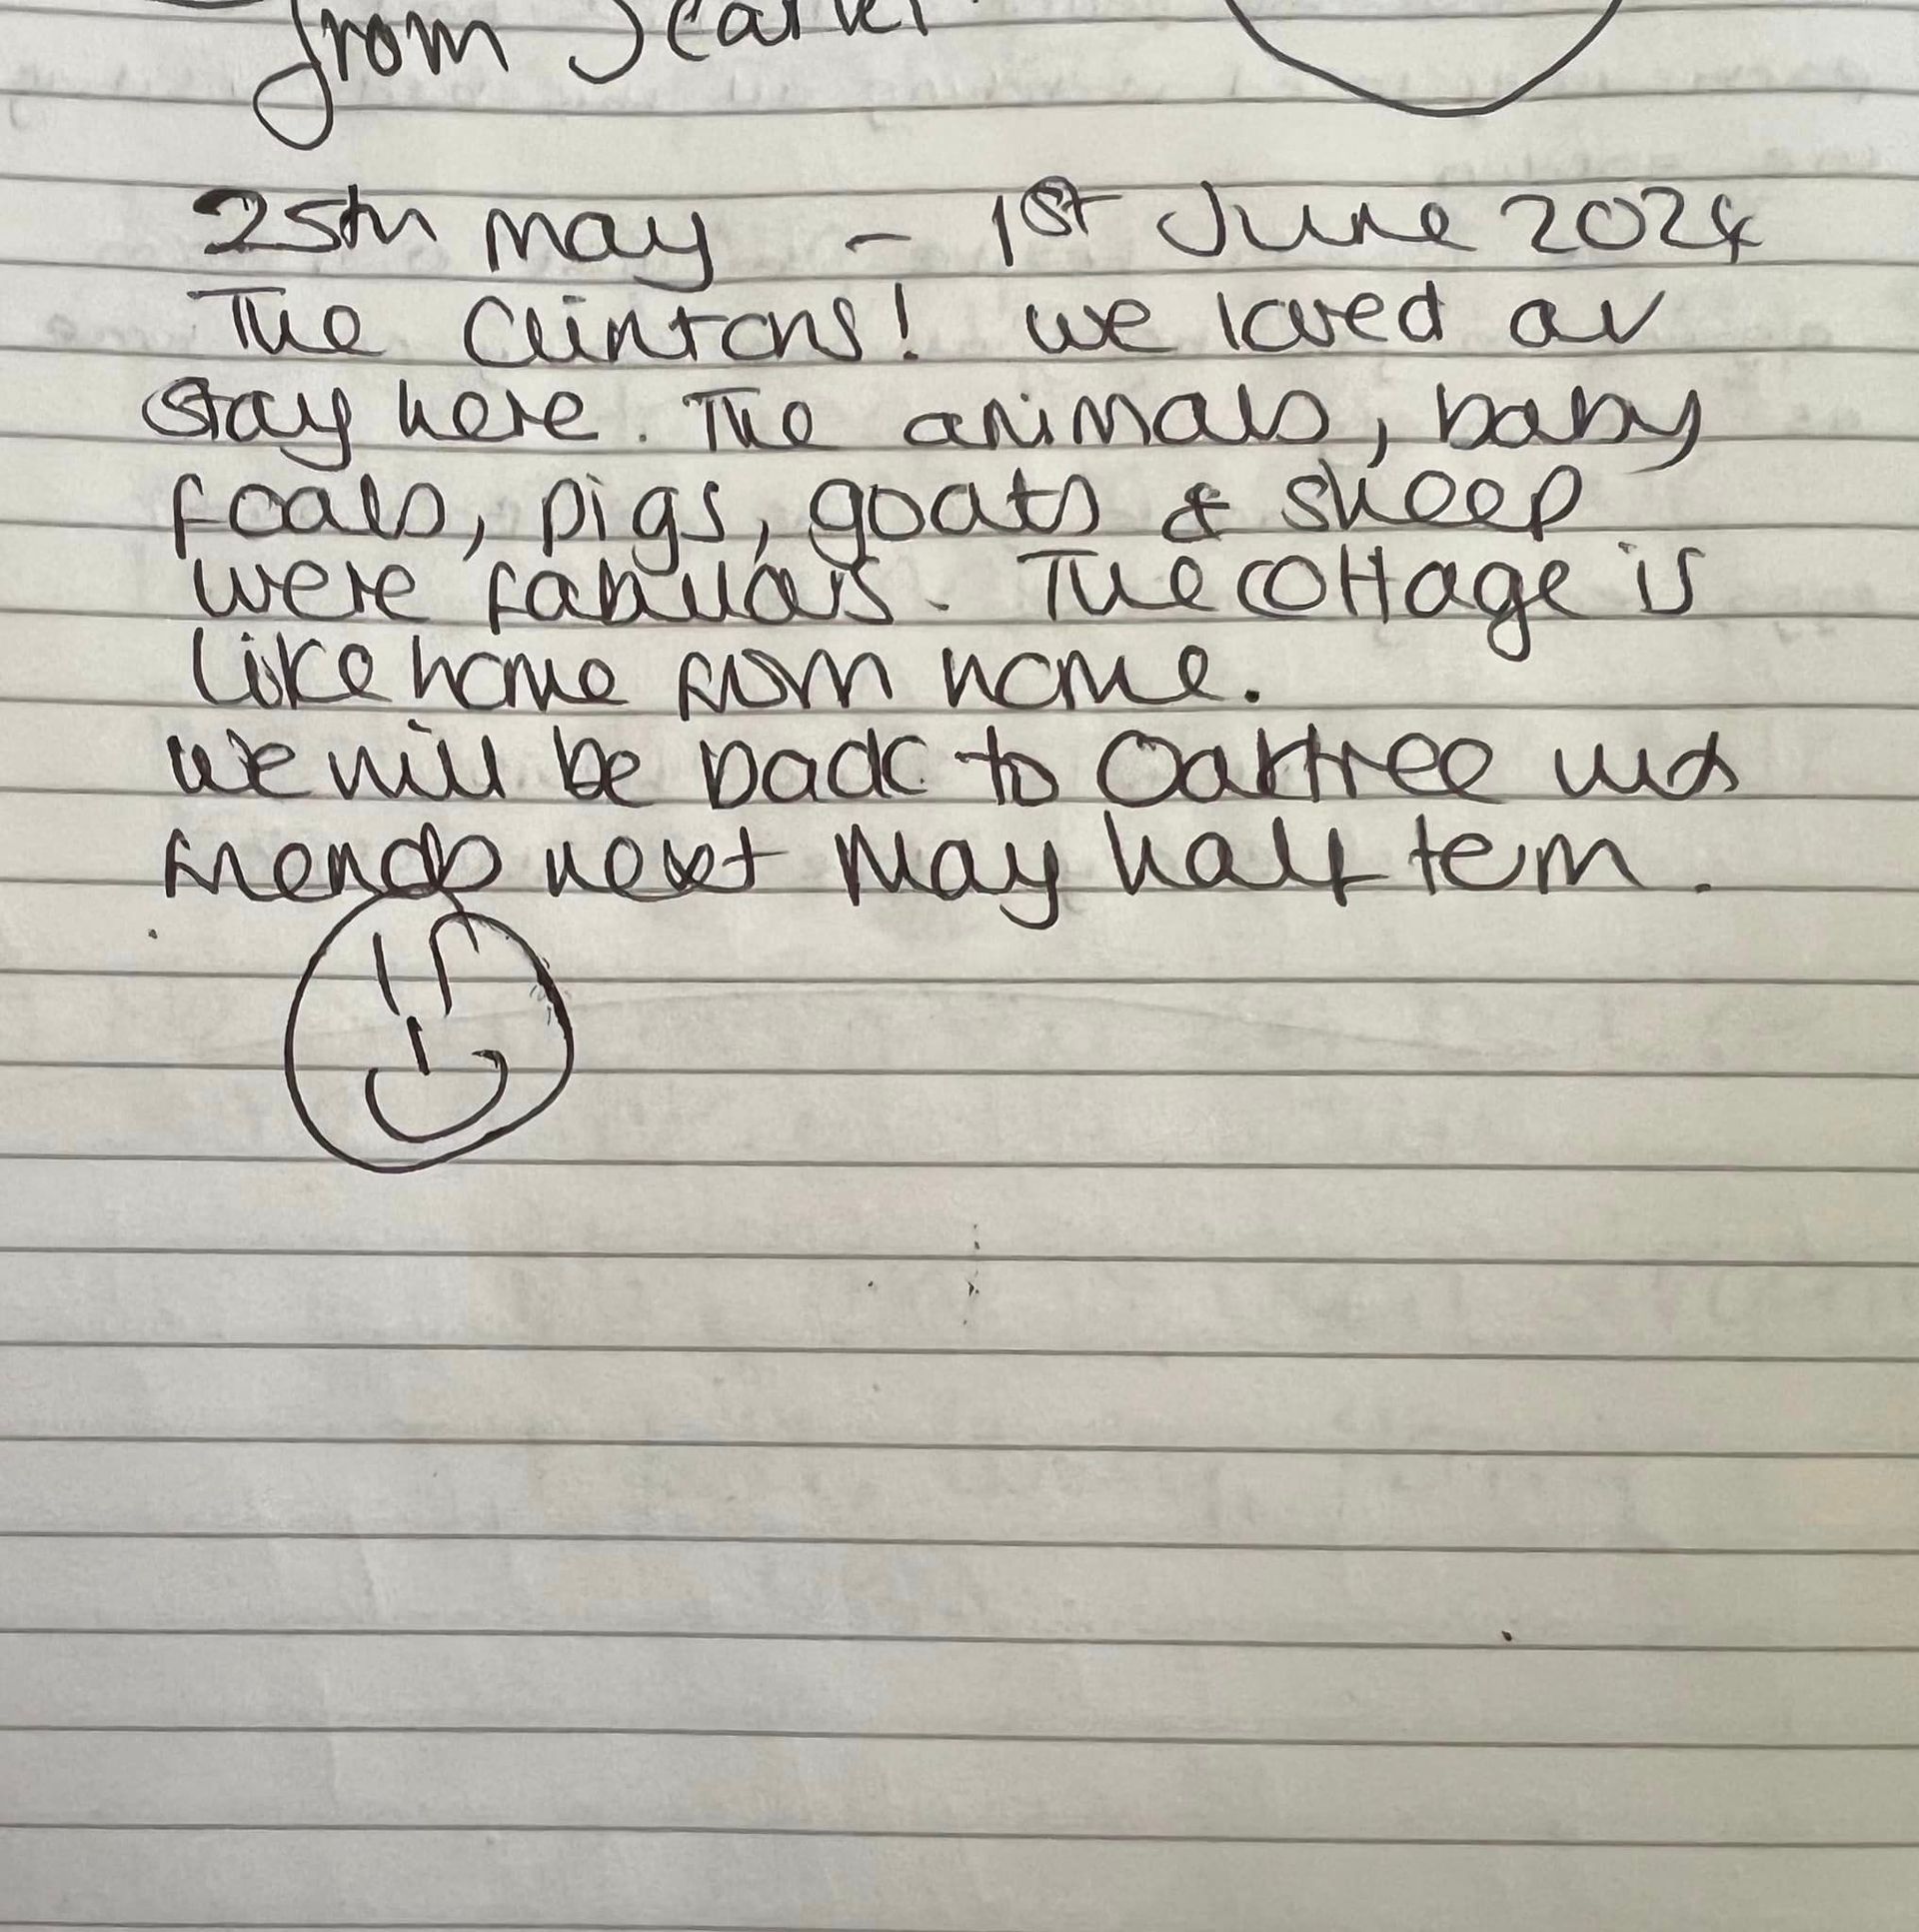 from
25th May - 1st June 2024
The Clintons! We loved our
stay here. The animals, baby
foals, pigs, goats & sheep
were fabulous. The cottage is
like home from home.
We will be back to Oaktree with
friends next May half term.